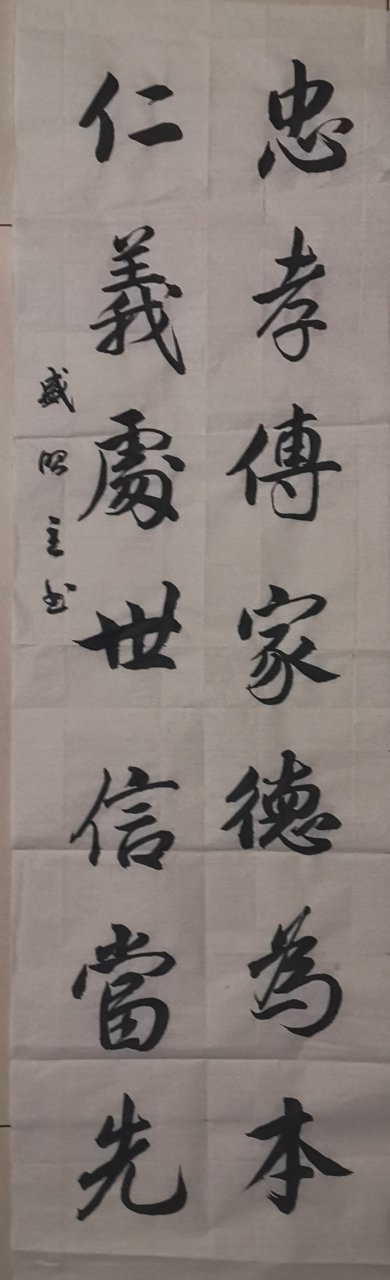 忠孝傳家德為本
仁義處世信當先
盛昭主书